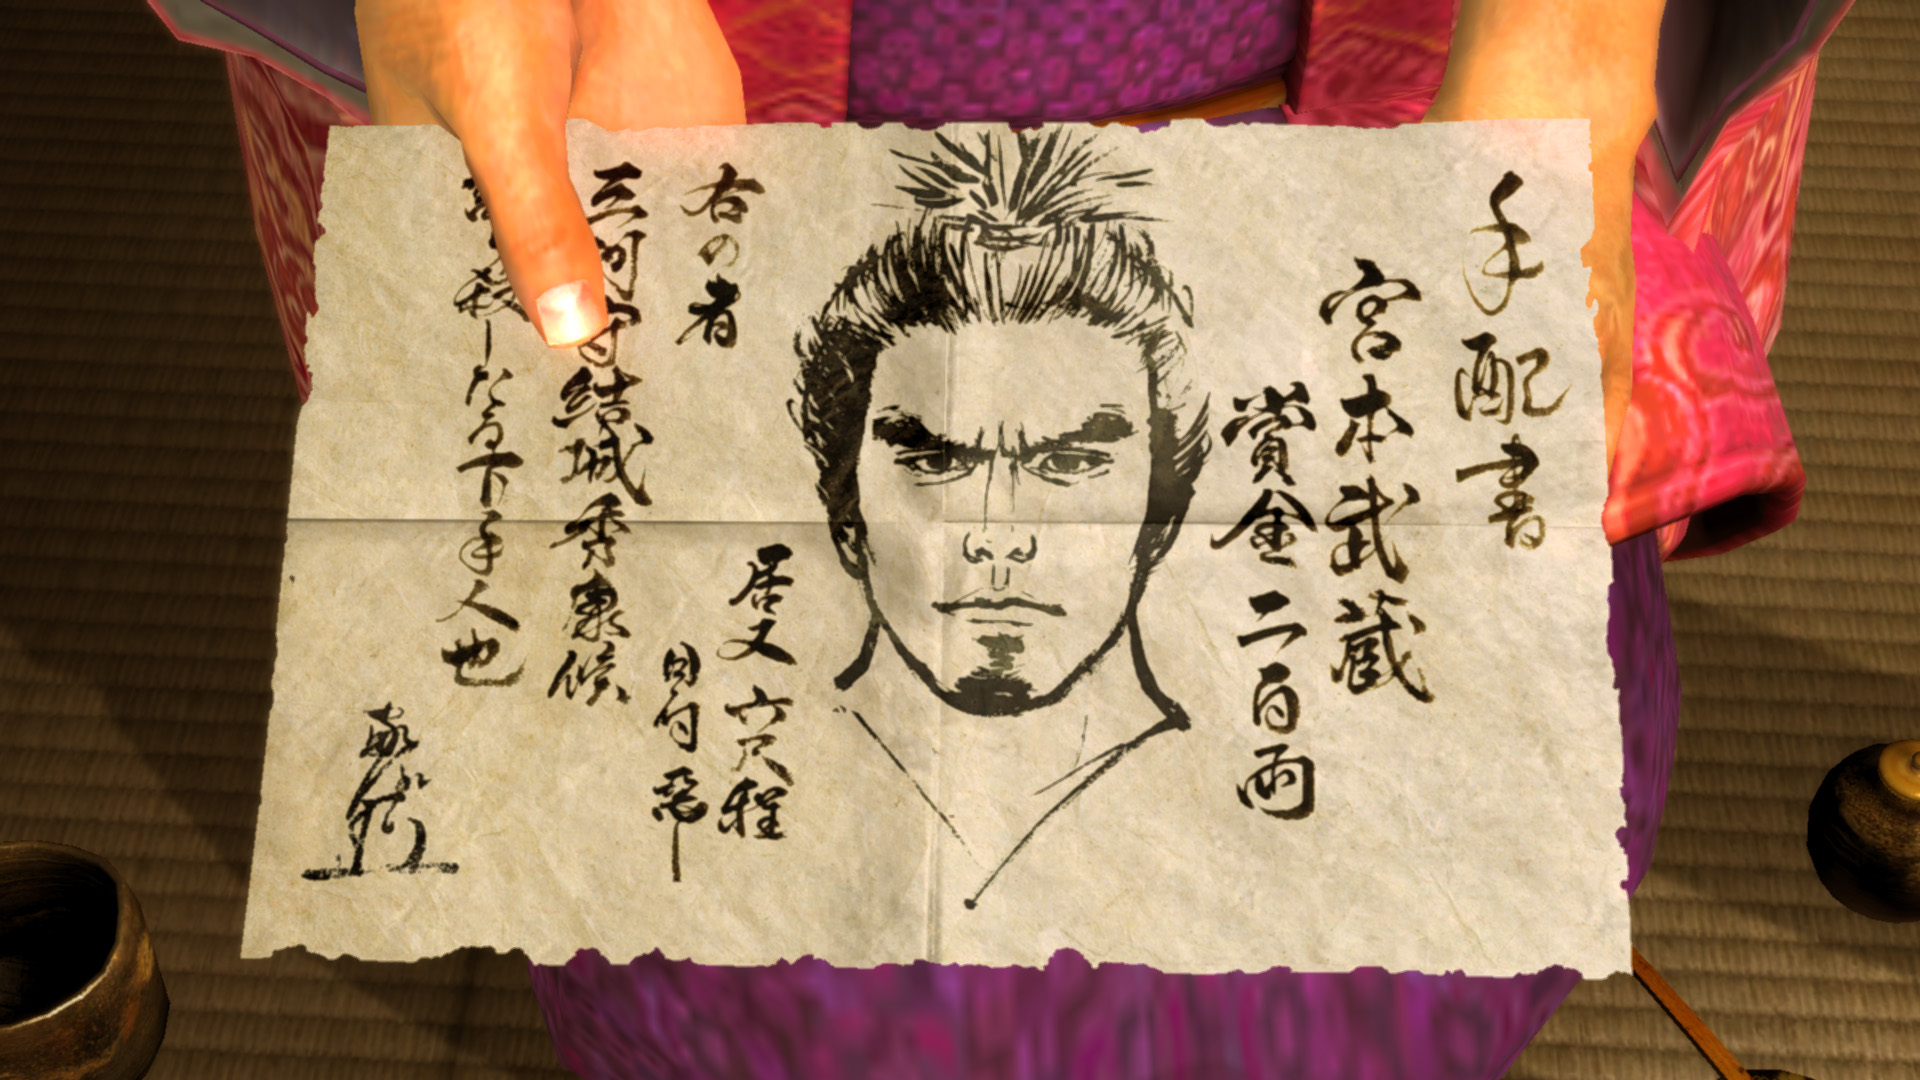 手配書
宮本武蔵
賞金二百両
居丈六尺程
目付悪し
右の者
三河守結城秀康候
殺したる下手人也